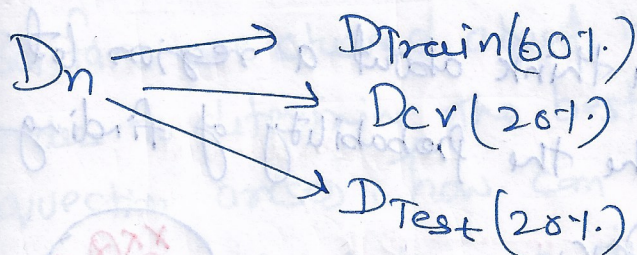 Dn
DTrain(60%)
Dcv(20%)
DTest(20%)